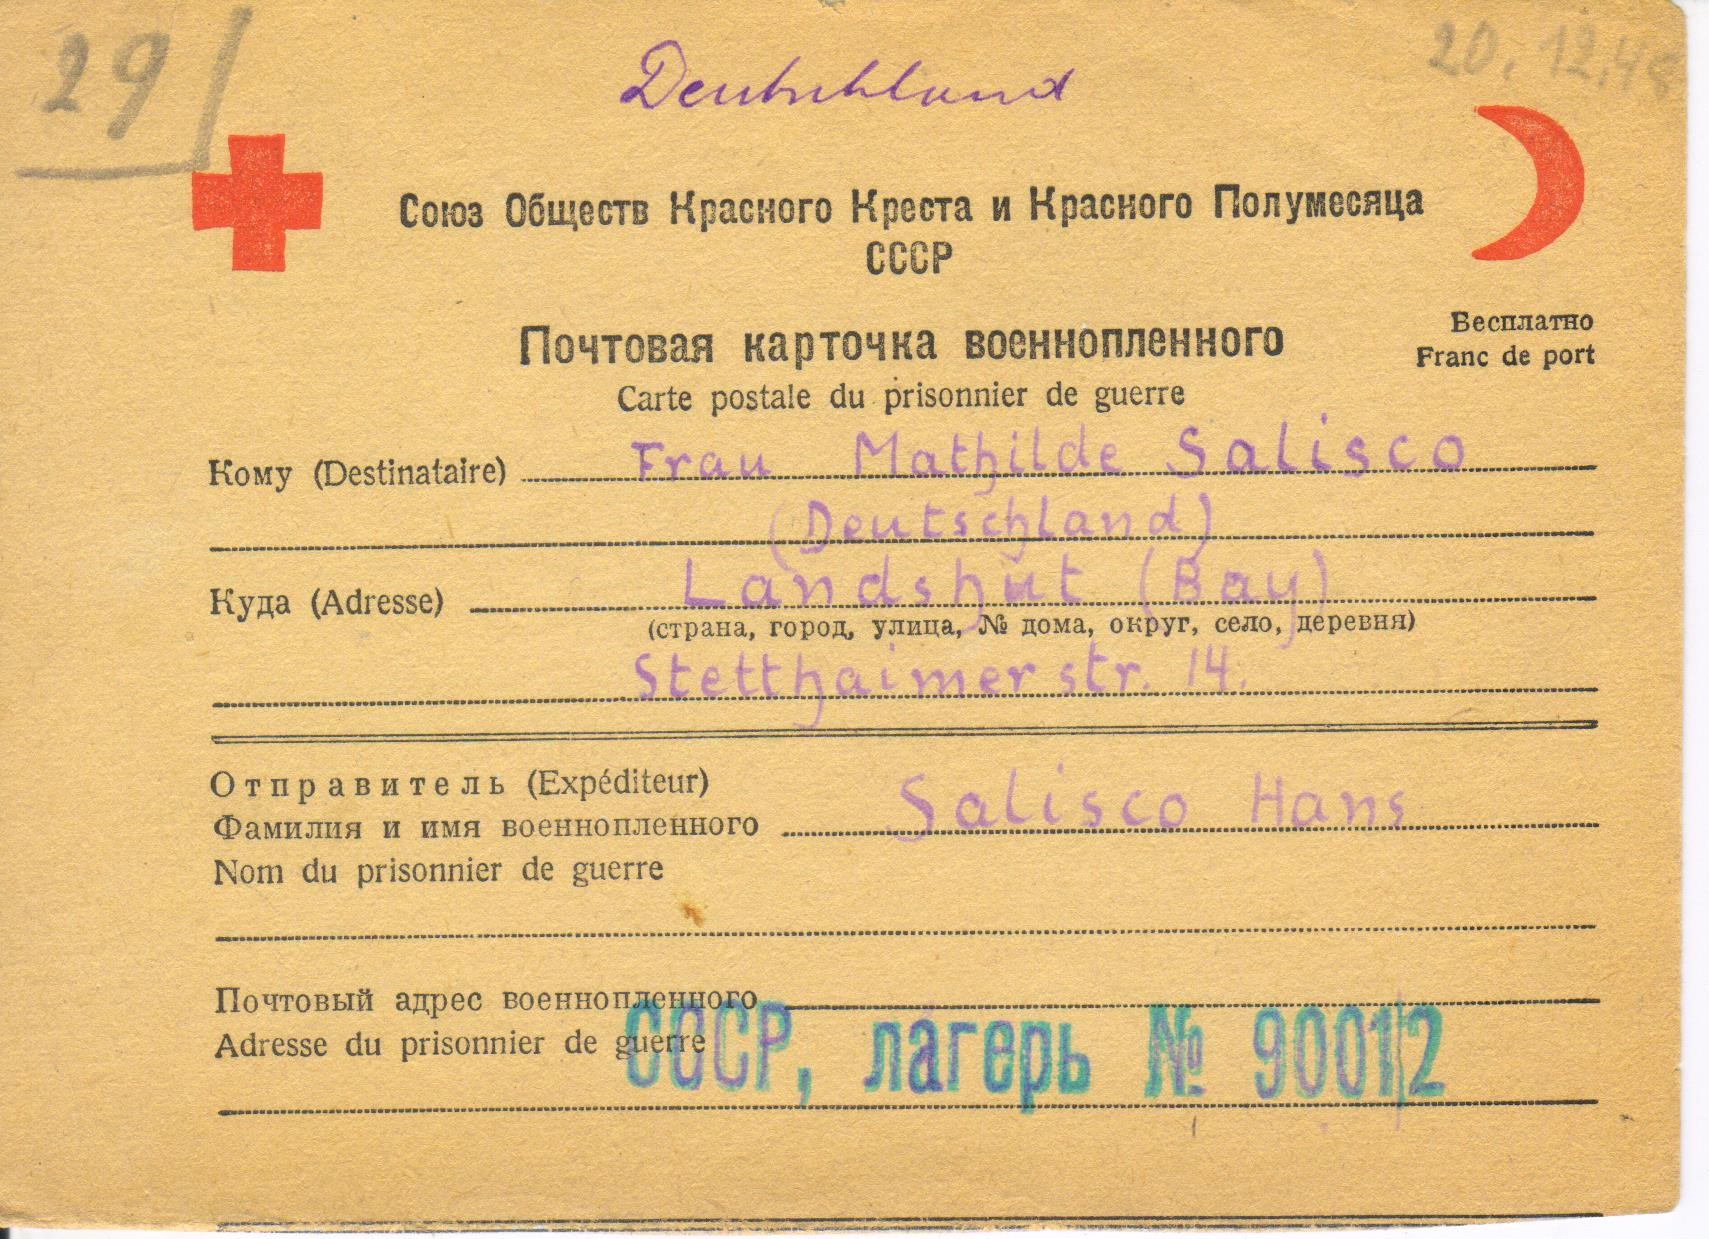 29
20.12.48
Deutschland
Союз Обществ Красного Креста и Красного Полумесяца
СССР
Бесплатно
Franc de port
Почтовая карточка военнопленного
Carte postale du prisonnier de guerre
Кому (Destinataire) Frau Mathilde Salisco
(Deutschland)
Куда (Adresse) Landshut (Bay)
(страна, город, улица, № дома, округ, село, деревня)
Stetthaimerstr. 14.
Отправитель (Expéditeur)
Фамилия и имя военнопленного Salisco Hans
Nom du prisonnier de guerre
Почтовый адрес военнопленного
Adresse du prisonnier de guerre
СССР, лагерь № 9001/2